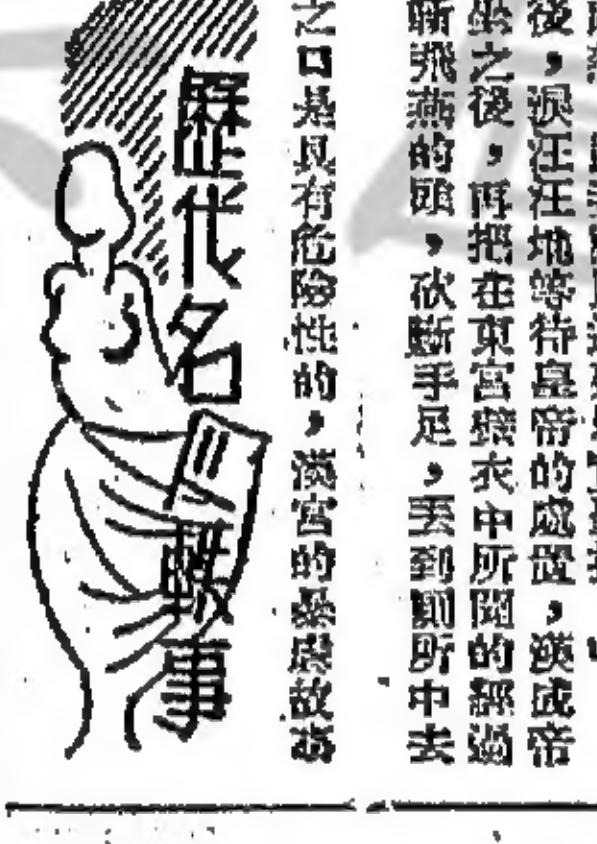 後，淚汪汪地等待皇帝的處置，漢成帝
坐之後，再把在東宮壁衣中所聞的經過
斬飛燕的頭，砍斷手足，丟到廁所中去
之口是具有危險性的，漢宮的暴虐故事
歷代名軼事